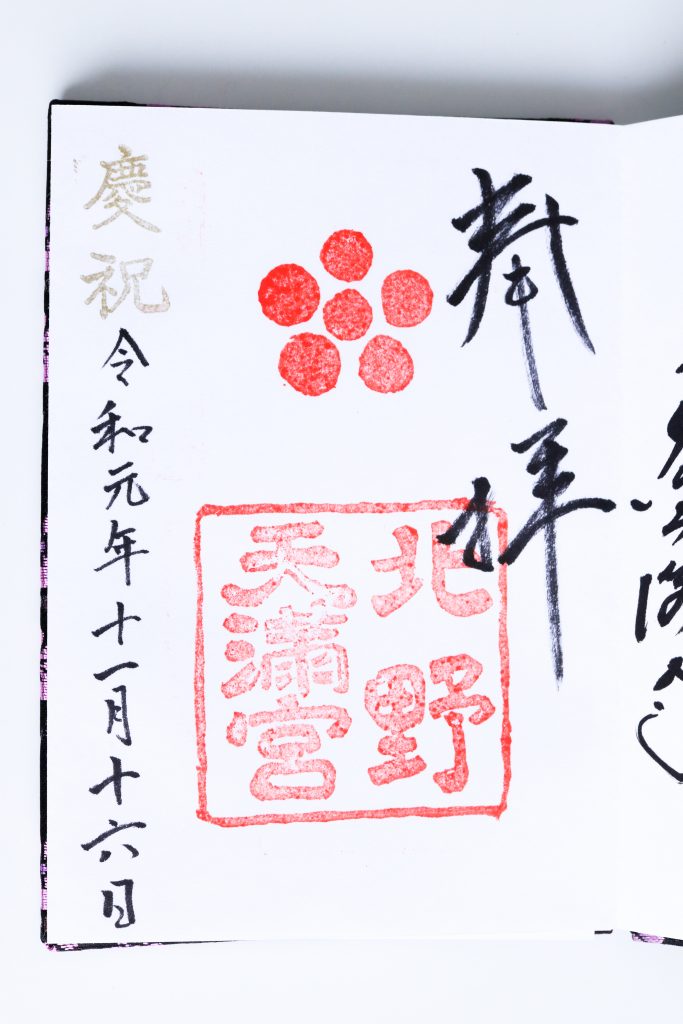 奉拝
北野
天満宮
慶祝
令和元年十一月十六日